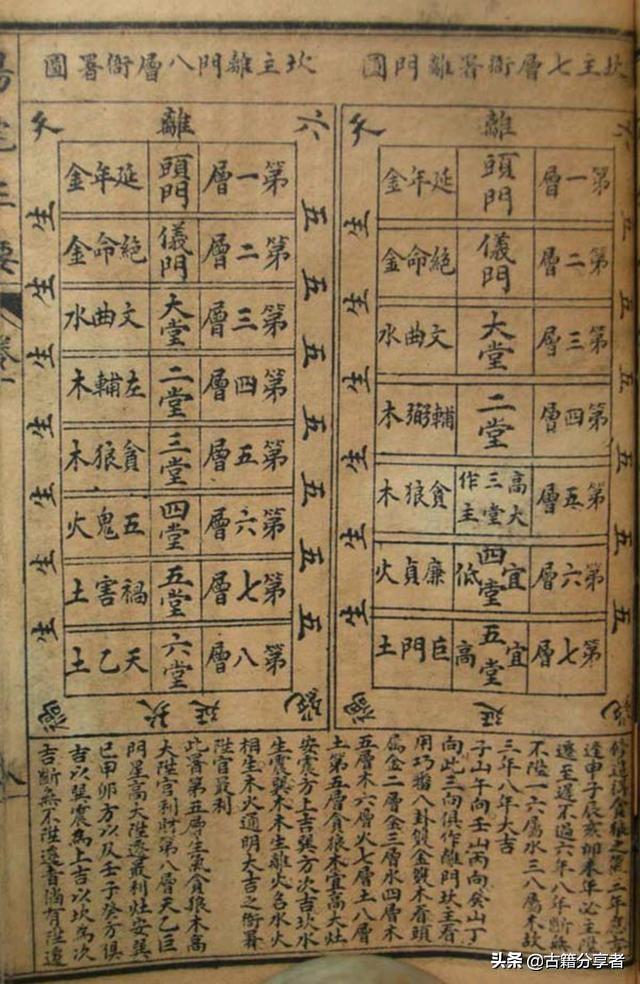 坎主七層衙署離門圖
離 天
第一層 頭門 延年金
第二層 儀門 絕命金
第三層 大堂 文曲水
第四層 二堂 輔弼木
第五層 高大三堂作主 貪狼木
第六層 四堂宜低 廉貞火
第七層 五堂宜高 巨門土
五 五 五 五 五 五
生 生 生 生 生 生
延 禍
坎主離門八層衙署圖
六 離 天
第一層 頭門 延年金
第二層 儀門 絕命金
第三層 大堂 文曲水
第四層 二堂 左輔木
第五層 三堂 貪狼木
第六層 四堂 五鬼火
第七層 五堂 禍害土
第八層 六堂 天乙土
五 五 五 五 五 五 五
生 生 生 生 生 生 生
絕 延 禍
修造得貪狼之氣二年應吉
逢申子辰亥卯未年必主陞
遷至遲不過六年八年斷無
不陞一六屬水三八屬木故
三年八年大吉
子山午向壬山丙向癸山丁
向此三向俱作離門坎主看
用巧番八卦金變木看頭
屬金二層金三層水四層木
五層木六層火七層土八層
土第五層貪狼木宜高大灶
安震方上吉巽方次吉坎水
生震巽木木生離火名水火
相生木火通明大吉之衙署
陞官最利
此署第五層生氣貪狼木高
大陞官利財第八層天乙巨
門星高大陞遷最利灶安巽
巳甲卯方以及壬子癸方俱
吉以巽震為上吉以坎為次
吉斷無不陞遷者倘有陞遷
陽宅三要
卷一
头条 @古籍分享者